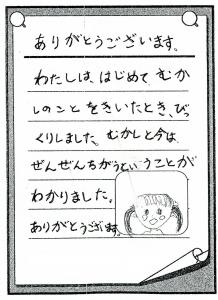 ありがとうございます。
わたしは、はじめて、むか
しのことをきいたとき、びっ
くりしました。むかしと今は、
ぜんぜんちがうということが
わかりました。
ありがとうございます。